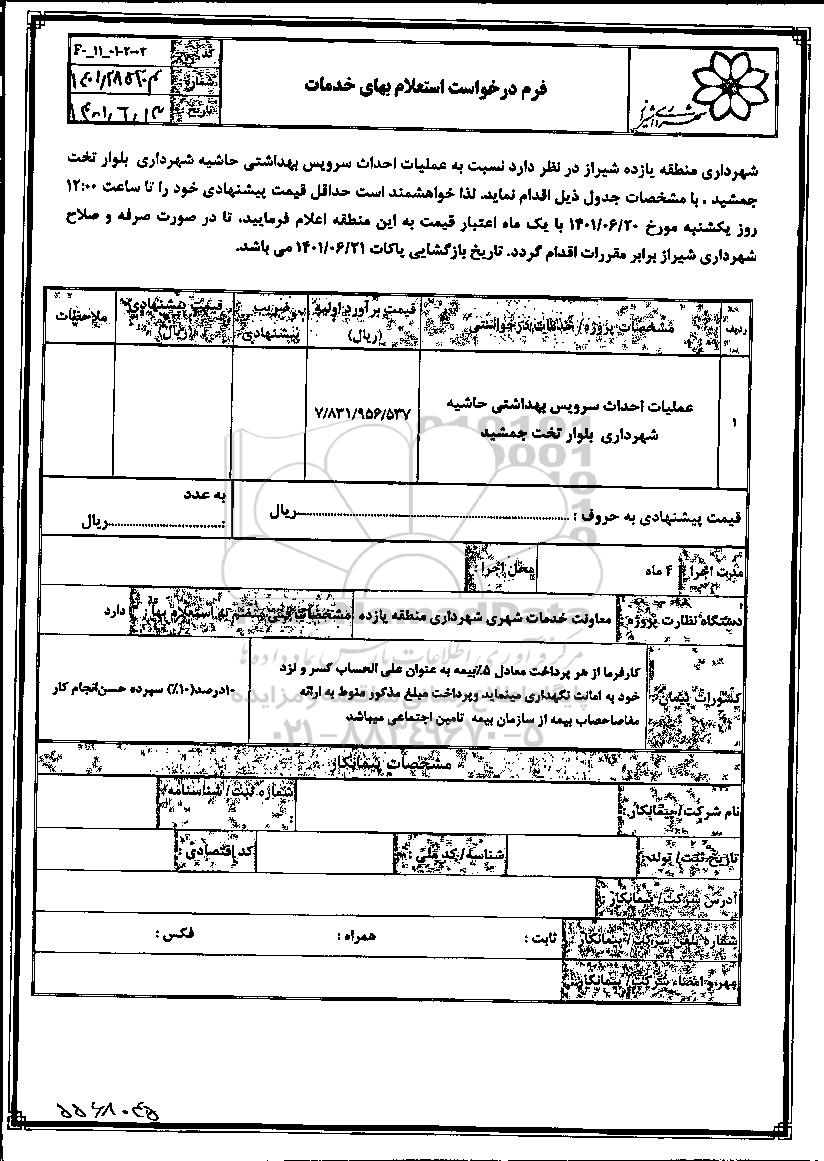 فرم درخواست استعلام بهای خدمات
کد:
F-_11_01-2-02
شماره
تاریخ
شهرداری شیراز
شهرداری منطقه یازده شیراز در نظر دارد نسبت به عملیات احداث سرویس بهداشتی حاشیه شهرداری بلوار تخت
جمشید ، با مشخصات جدول ذیل اقدام نماید. لذا خواهشمند است حداقل قیمت پیشنهادی خود را تا ساعت ۱۲:۰۰
روز یکشنبه مورخ ۱۴۰۱/۰۶/۲۰ با یک ماه اعتبار قیمت به این منطقه اعلام فرمایید، تا در صورت صرفه و صلاح
شهرداری شیراز برابر مقررات اقدام گردد. تاریخ بازگشایی پاکات ۱۴۰۱/۰۶/۲۱ می باشد.
ردیف
مشخصات پروژه/ خدمات درخواستی
قیمت برآورد اولیه
(ریال)
ضریب
پیشنهادی
قیمت پیشنهادی
(ریال)
ملاحظات
۱
عملیات احداث سرویس بهداشتی حاشیه
شهرداری بلوار تخت جمشید
۷/۸۳۱/۹۵۶/۵۳۷
قیمت پیشنهادی به حروف : ..........ریال
به عدد
:..........ریال
مدت اجرا
۴ ماه
محل اجرا
دستگاه نظارت پروژه
معاونت خدمات شهری شهرداری منطقه یازده
دارد
کسورات
کارفرما از هر پرداخت معادل ۵٪بیمه به عنوان علی الحساب کسر و نزد
خود به امانت نگهداری مینماید وپرداخت مبلغ مذکور منوط به ارائه
مفاصاحصاب بیمه از سازمان بیمه تامین اجتماعی میباشد
۱۰درصد(۱۰٪) سپرده حسن انجام کار
مشخصات پیمانکار
نام شرکت/پیمانکار :
شماره ثبت/ شناسنامه
تاریخ ثبت/ تولد :
شناسه/ کد ملی :
کد اقتصادی :
آدرس شرکت/ پیمانکار :
شماره تلفن شرکت/ پیمانکار :
ثابت :
همراه :
فکس :
مهر و امضاء شرکت/ پیمانکار
۰۲۱-۸۸۳۴۹۶۷۰-۵